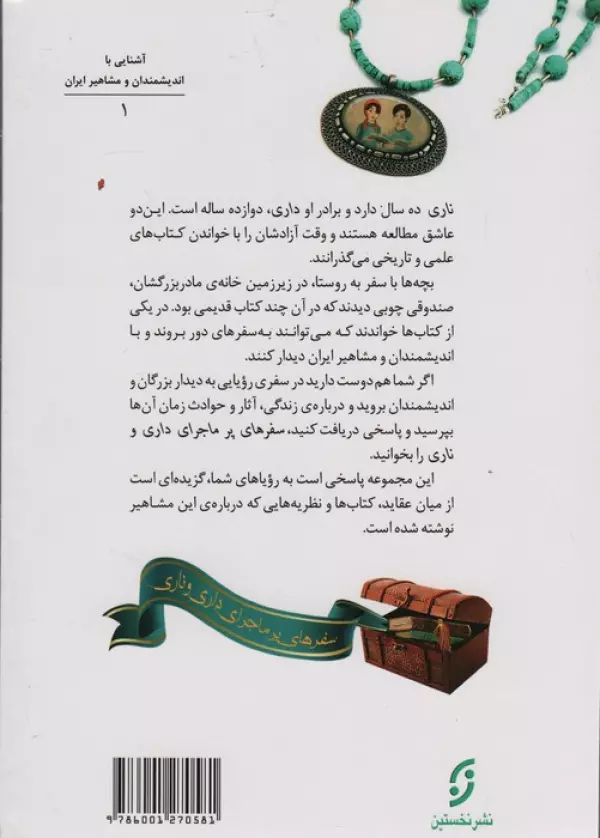 آشنایی با
اندیشمندان و مشاهیر ایران
۱
ناری ده سال دارد و برادر او داری، دوازده ساله است. این‌دو
عاشق مطالعه هستند و وقت آزادشان را با خواندن کتاب‌های
علمی و تاریخی می‌گذرانند.
بچه‌ها با سفر به روستا، در زیرزمین خانه‌ی مادربزرگشان،
صندوقی چوبی دیدند که در آن چند کتاب قدیمی بود. در یکی
از کتاب‌ها خواندند که می‌توانند به‌سفرهای دور بروند و با
اندیشمندان و مشاهیر ایران دیدار کنند.
اگر شما هم دوست دارید در سفری رؤیایی به دیدار بزرگان و
اندیشمندان بروید و درباره‌ی زندگی، آثار و حوادث زمان آن‌ها
بپرسید و پاسخی دریافت کنید، سفرهای پر ماجرای داری و
ناری را بخوانید.
این مجموعه پاسخی است به رؤیاهای شما، گزیده‌ای است
از میان عقاید، کتاب‌ها و نظریه‌هایی که درباره‌ی این مشاهیر
نوشته شده است.
سفرهای پر ماجرای داری و ناری
9786001270581
نشر نخستین